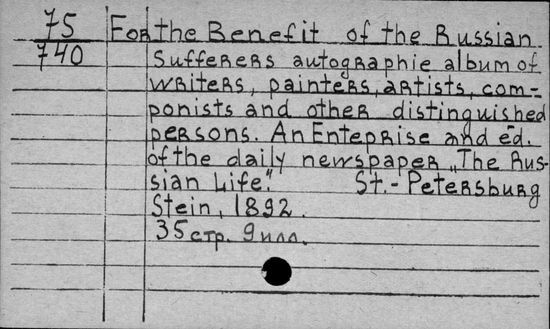 75
740
For the Benefit of the Russian
Sufferers autographie album of
writers, painters, artists, com-
ponists and other distinguished
persons. An Enteprise and ed.
of the daily newspaper „The Rus-
sian Life". St.-Petersburg
Stein, 1892.
35 стр. 9 илл.